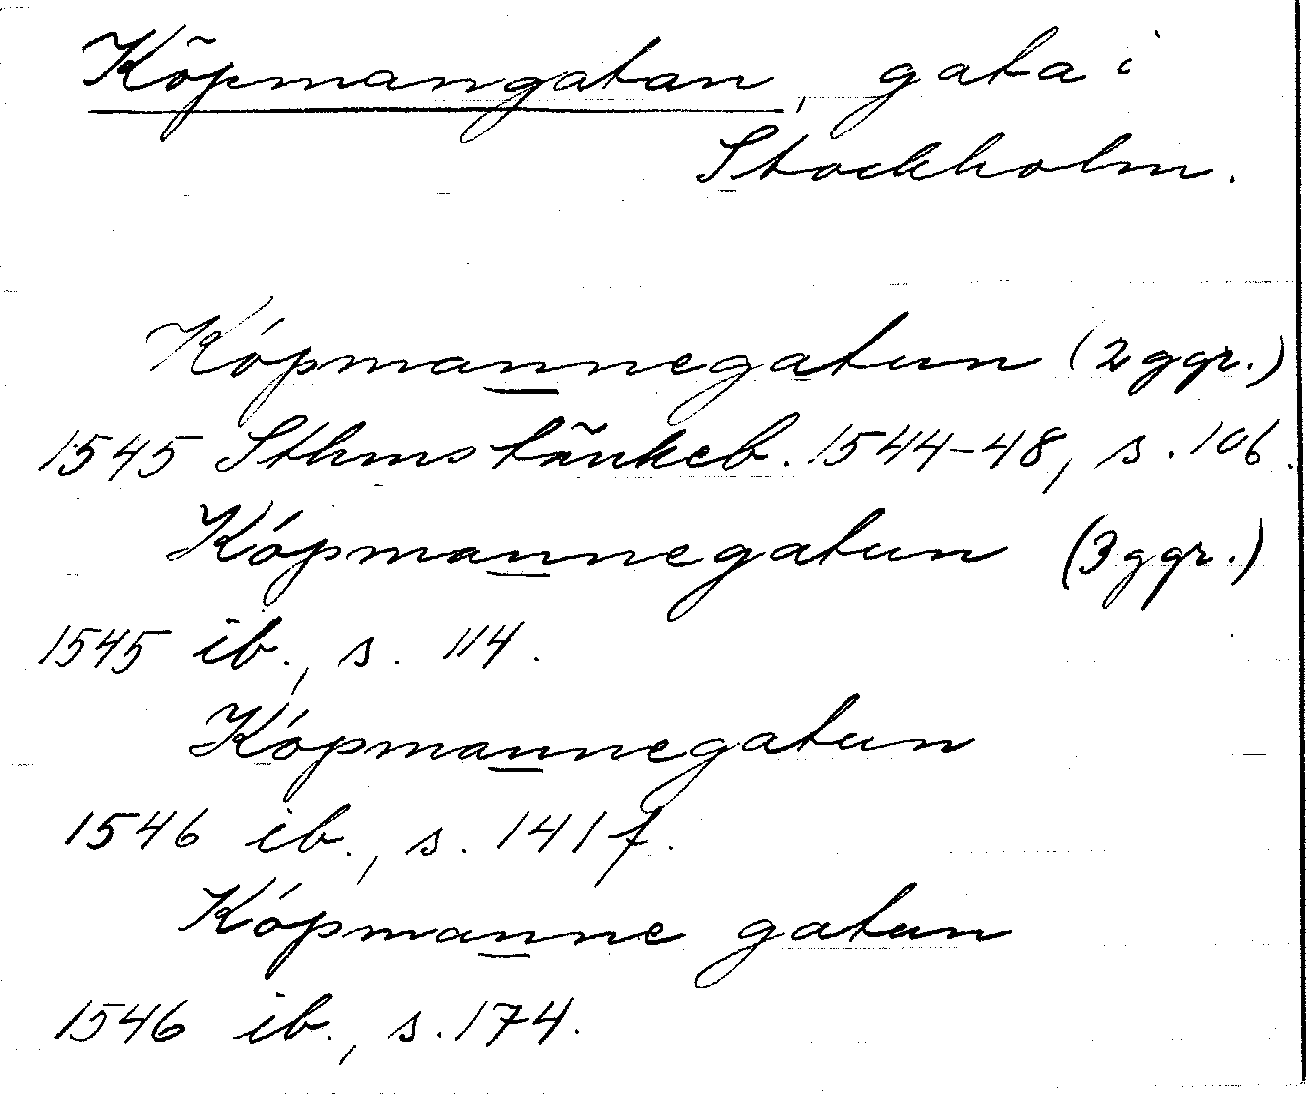 Köpmangatan, gata i
Stockholm.
Kópmannegatun (2 ggr.)
1545 Sthms tänkeb. 1544-48, s. 106.
Kópmannegatun (3 ggr.)
1545 ib., s. 114.
Kópmannegatun
1546 ib., s. 141 f.
Kópmanne gatun
1546 ib., s. 174.